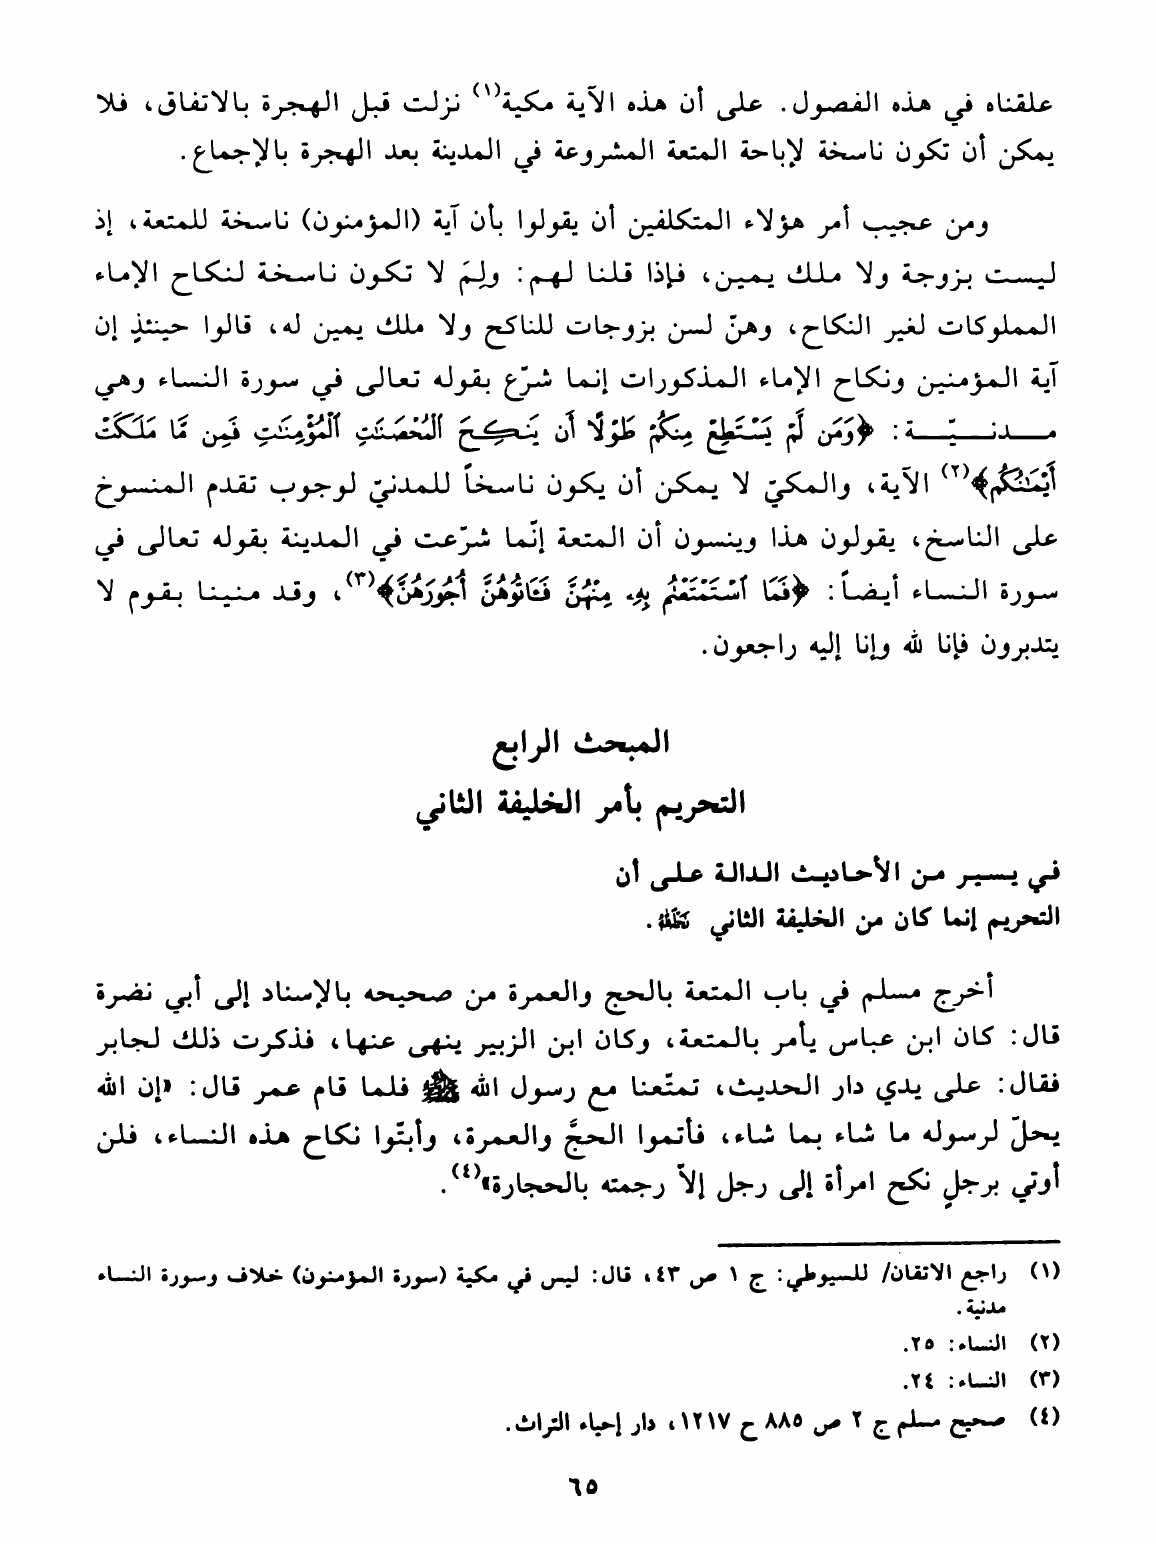 علقناه في هذه الفصول. على أن هذه الآية مكية(١) نزلت قبل الهجرة بالاتفاق، فلا
يمكن أن تكون ناسخة لإباحة المتعة المشروعة في المدينة بعد الهجرة بالإجماع.
ومن عجيب أمر هؤلاء المتكلفين أن يقولوا بأن آية (المؤمنون) ناسخة للمتعة، إذ
ليست بزوجة ولا ملك يمين، فإذا قلنا لهم: ولِمَ لا تكون ناسخة لنكاح الإماء
المملوكات لغير النكاح، وهنّ لسن بزوجات للناكح ولا ملك يمين له، قالوا حينئذٍ إن
آية المؤمنين ونكاح الإماء المذكورات إنما شرّع بقوله تعالى في سورة النساء وهي
مدنيّة: ﴿وَمَن لَّمْ يَسْتَطِعْ مِنكُمْ طَوْلًا أَن يَنكِحَ ٱلْمُحْصَنَٰتِ ٱلْمُؤْمِنَٰتِ فَمِن مَّا مَلَكَتْ
أَيْمَٰنُكُم﴾(٢) الآية، والمكيّ لا يمكن أن يكون ناسخاً للمدنيّ لوجوب تقدم المنسوخ
على الناسخ، يقولون هذا وينسون أن المتعة إنّما شرّعت في المدينة بقوله تعالى في
سورة النساء أيضاً: ﴿فَمَا ٱسْتَمْتَعْتُم بِهِۦ مِنْهُنَّ فَـَٔاتُوهُنَّ أُجُورَهُنَّ﴾(٣)، وقد منينا بقوم لا
يتدبرون فإنا لله وإنا إليه راجعون.
المبحث الرابع
التحريم بأمر الخليفة الثاني
في يسير من الأحاديث الدالة على أن
التحريم إنما كان من الخليفة الثاني رضي الله عنه.
أخرج مسلم في باب المتعة بالحج والعمرة من صحيحه بالإسناد إلى أبي نضرة
قال: كان ابن عباس يأمر بالمتعة، وكان ابن الزبير ينهى عنها، فذكرت ذلك لجابر
فقال: على يدي دار الحديث، تمتّعنا مع رسول الله ﷺ فلما قام عمر قال: «إن الله
يحلّ لرسوله ما شاء بما شاء، فأتموا الحجَّ والعمرة، وأبتّوا نكاح هذه النساء، فلن
أوتي برجلٍ نكح امرأة إلى رجل إلاّ رجمته بالحجارة»(٤).
(١) راجع الاتقان/ للسيوطي: ج ١ ص ٤٣، قال: ليس في مكية (سورة المؤمنون) خلاف وسورة النساء
مدنية.
(٢) النساء: ٢٥.
(٣) النساء: ٢٤.
(٤) صحيح مسلم ج ٢ ص ٨٨٥ ح ١٢١٧، دار إحياء التراث.
٦٥